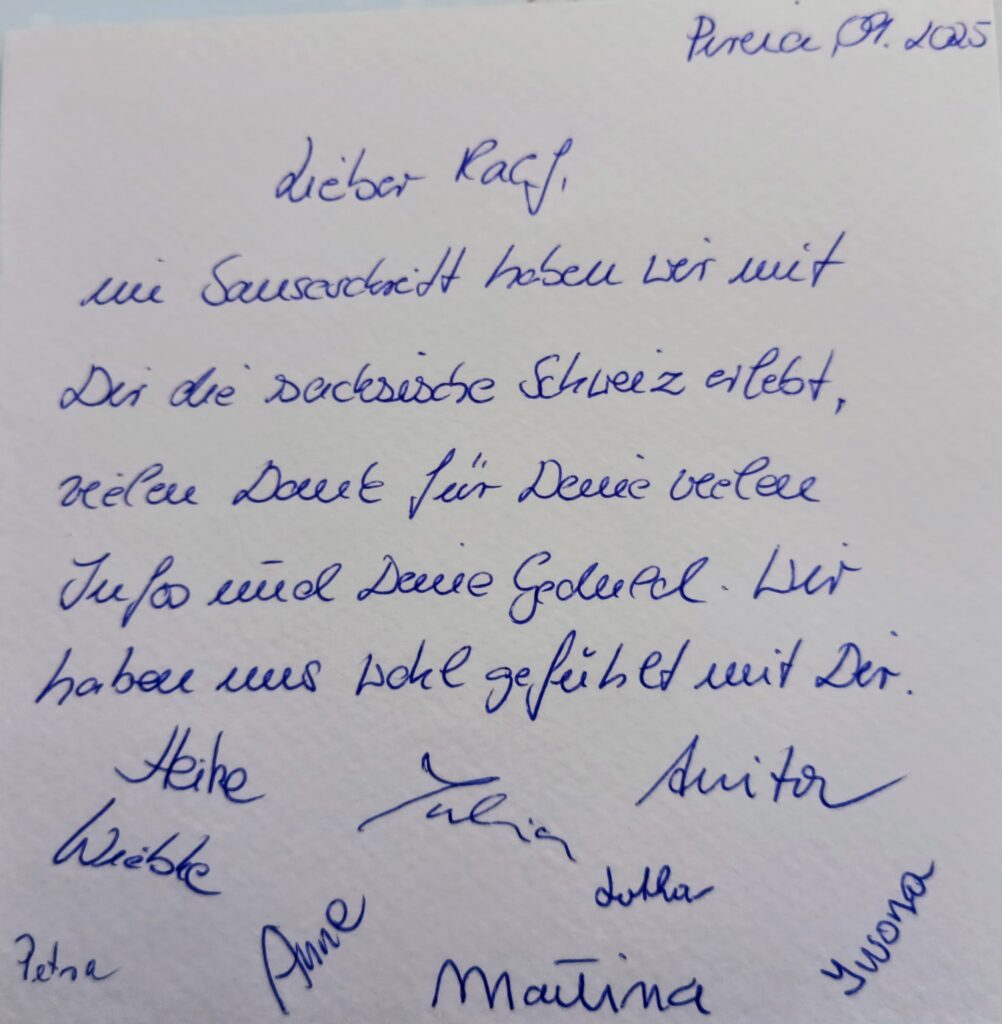 Pirna, 09. 2025
Lieber Ralf,
im Sauseschritt haben wir mit
Dir die sächsische Schweiz erlebt,
vielen Dank für Deine vielen
Infos und Deine Geduld. Wir
haben uns wohl gefühlt mit Dir.
Heike Julia Anita
Wiebke
Lothar
Petra Anne Martina Iwona